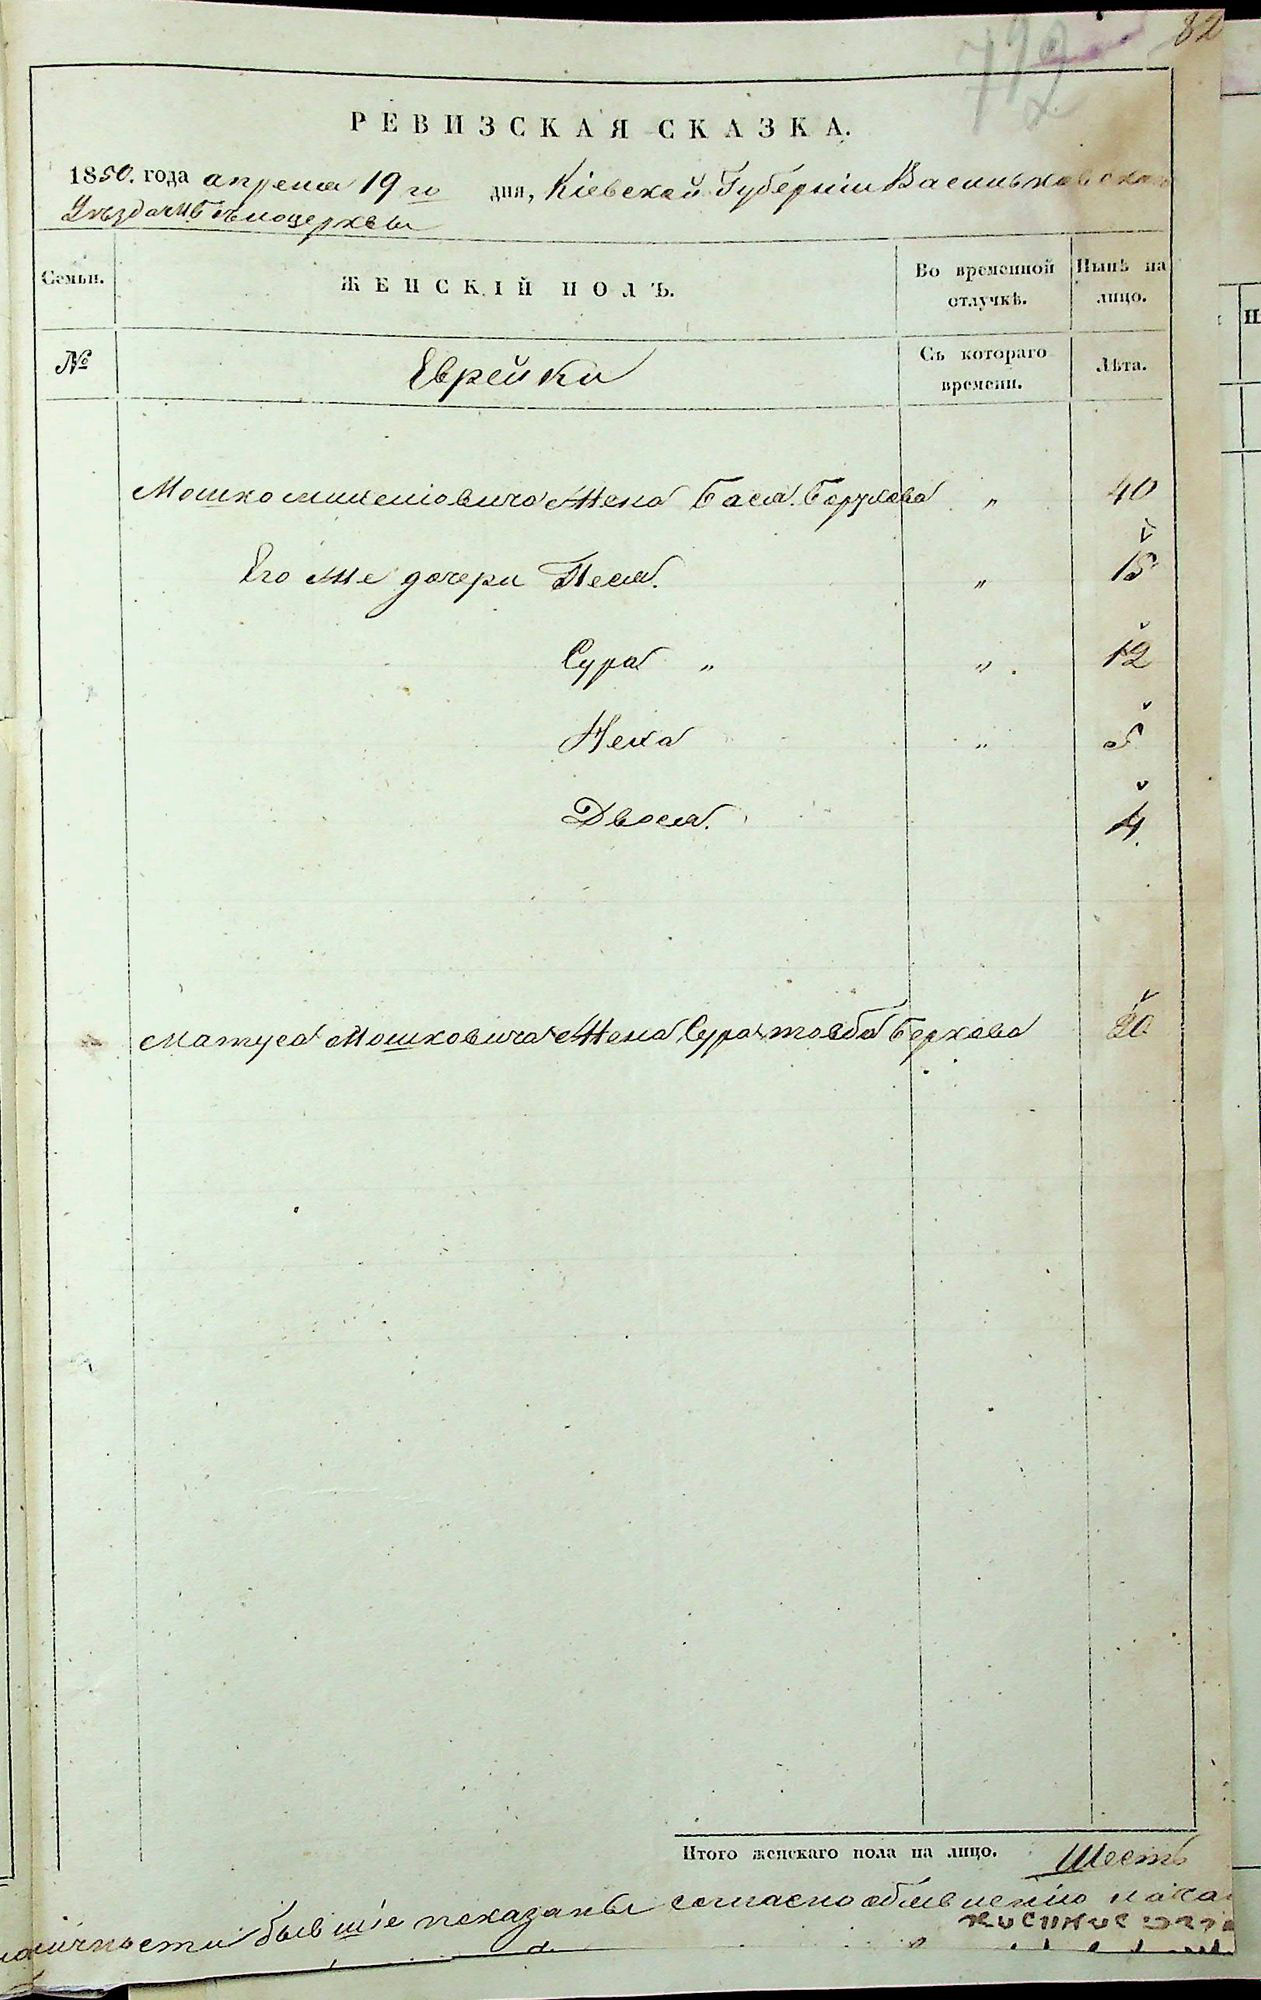 82
РЕВИЗСКАЯ СКАЗКА.
1850. года апреля 19 го дня, Кіевской Губерніи Васильковскаго
Уѣзда м. Бѣлоцеркви
Семьи. ЖЕНСКІЙ ПОЛЪ. Во временной отлучкѣ. Нынѣ на лицо.
№ Еврейки Съ котораго времени. Лѣта.
Мошко Жена Бася Борухова " 40
Его же дочери Песя. " 15
Сура " " 12
Неха " 5
Двося. 4.
Матуса Мошковича Жена Сура товба Беркова 20
Итого женскаго пола на лицо. Шесть
бывшіе показаны согласно объявленію